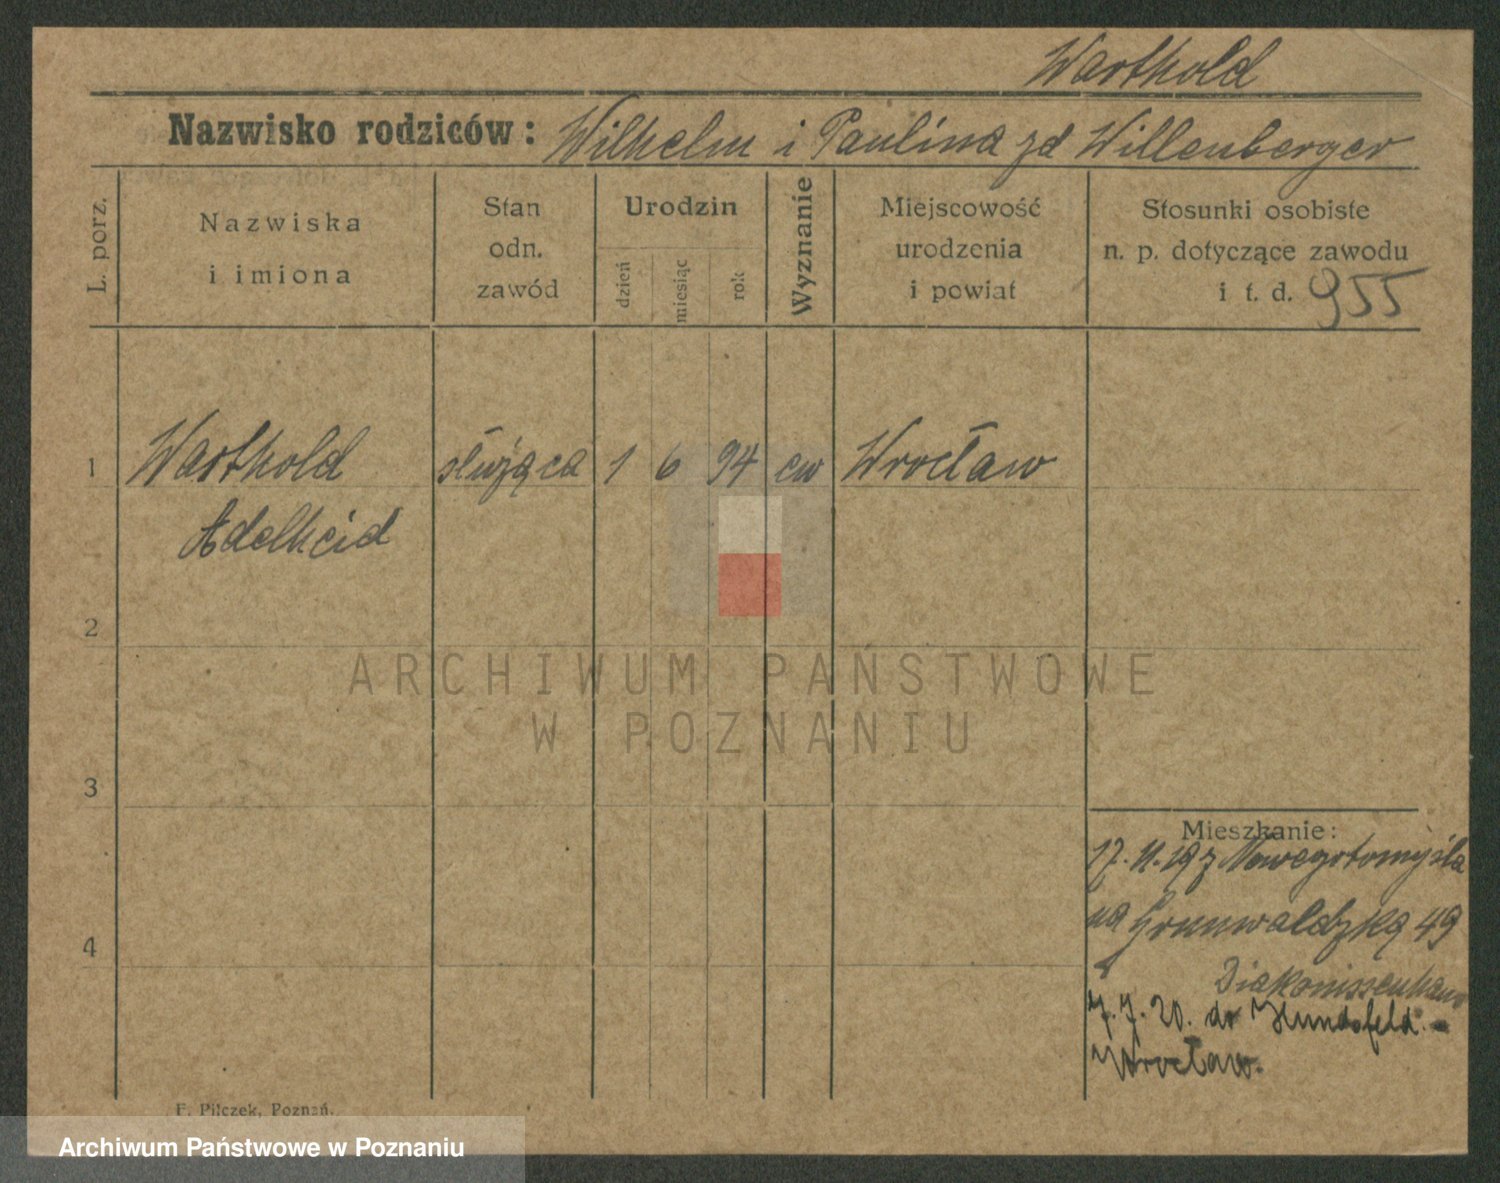 Warthold
Nazwisko rodziców: Wilhelm i Paulina zd Willenberger
L. porz.
Nazwiska
i imiona
Stan
odn.
zawód
Urodzin
dzień
miesiąc
rok
Wyznanie
Miejscowość
urodzenia
i powiat
Stosunki osobiste
n. p. dotyczące zawodu
i t. d. 955
1 Warthold służąca 1 6 94 ew Wrocław
Adelheid
2
ARCHIWUM PAŃSTWOWE
W POZNANIU
3
Mieszkanie:
17.11.19 z Nowegotomyśla
na Grunwaldzką 49
4
Diakonissenhaus
7.7.20. do Hundsfeld.-
Wrocław.
F. Pilczek, Poznań.
Archiwum Państwowe w Poznaniu